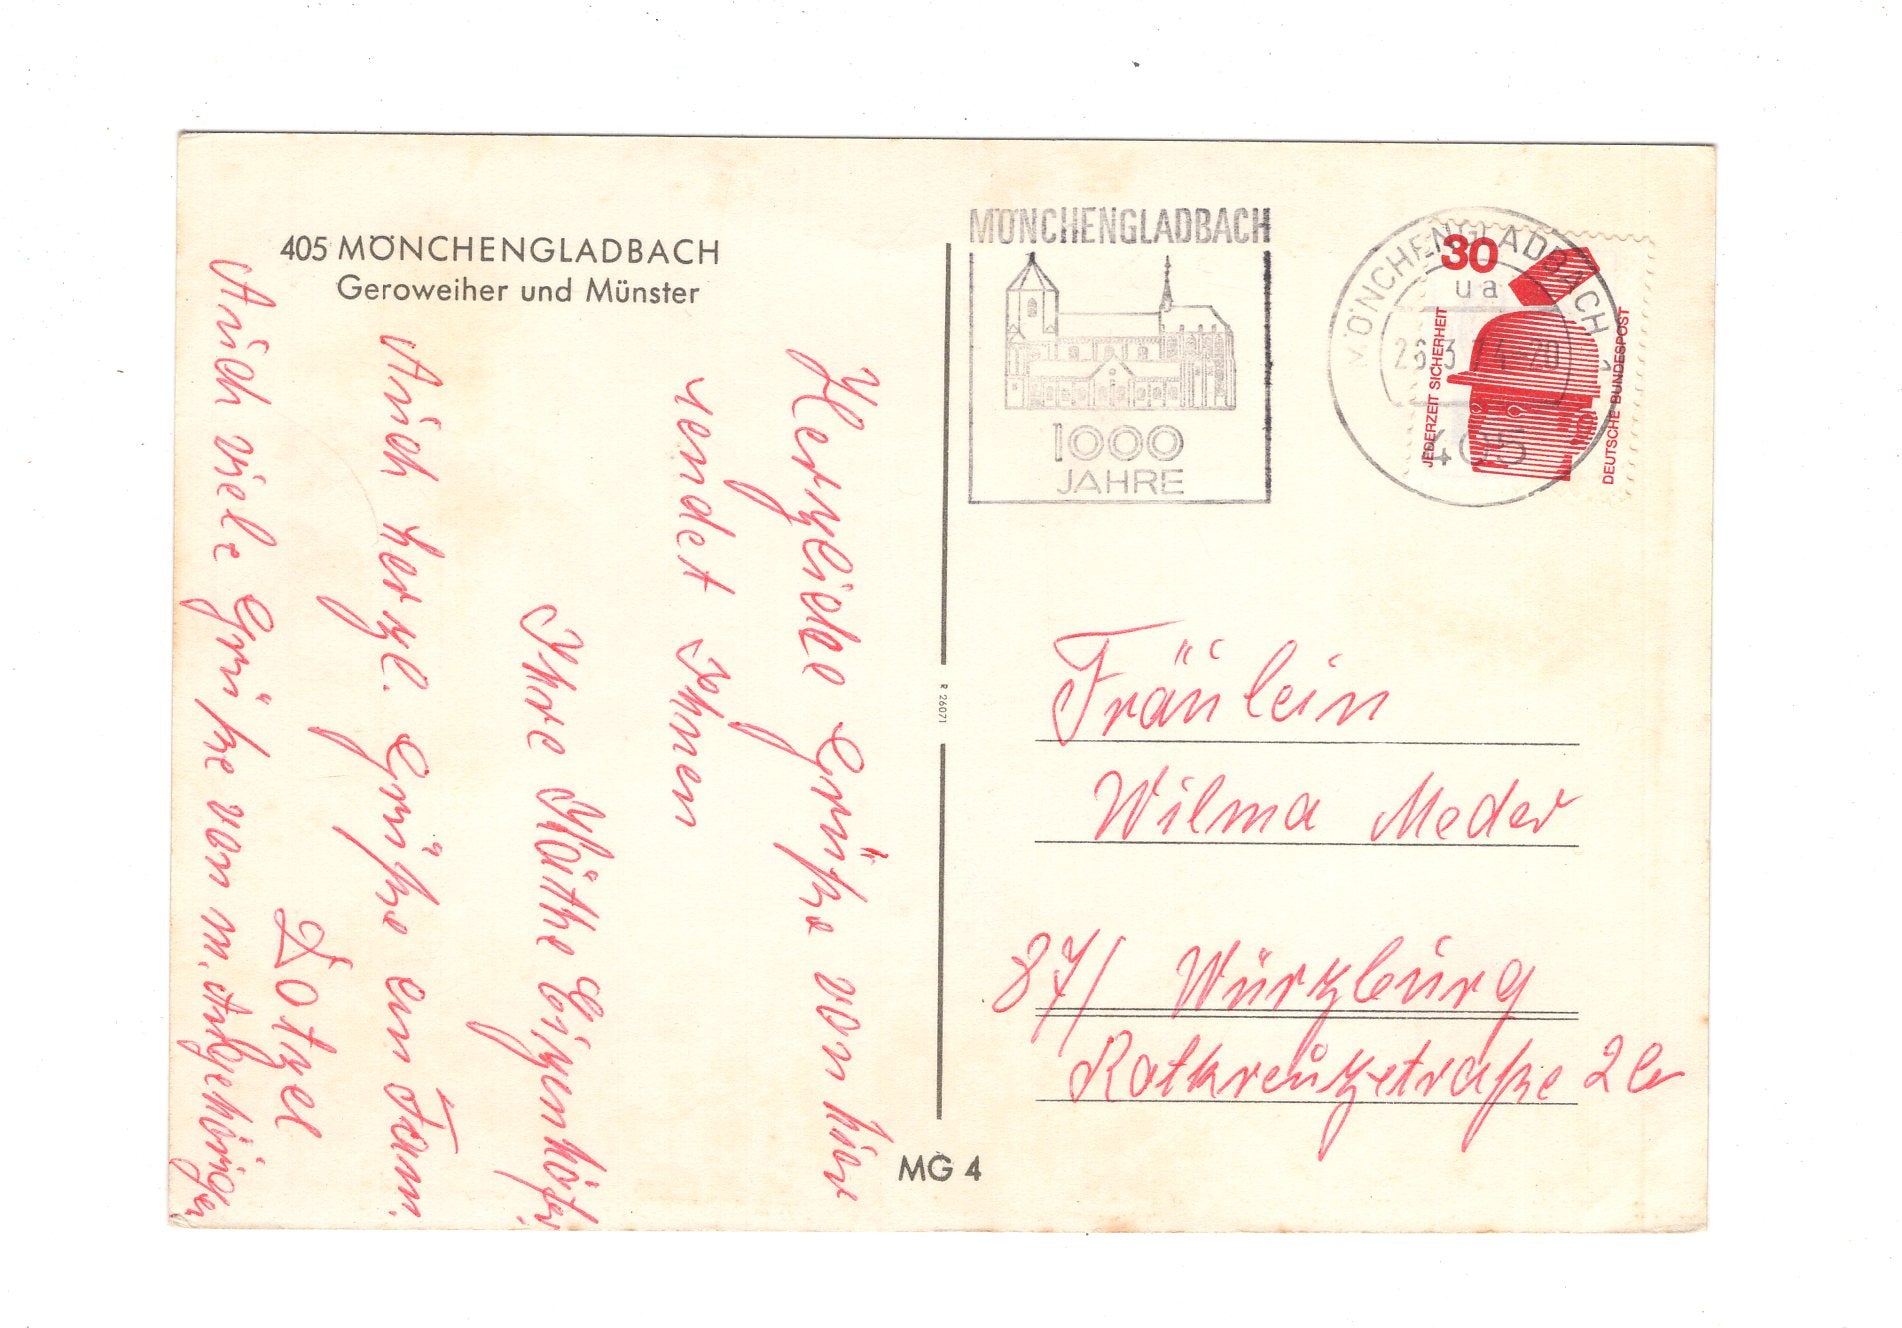 405 MÖNCHENGLADBACH
Geroweiher und Münster
Herzliche Grüße von hier
sendet Ihnen
Ihre Käthe
Auch herzl. Grüße an Fam.
Dotzel
Auch viele Grüße von m. Angehörigen
R 26071
MG 4
MÖNCHENGLADBACH
1000
JAHRE
MÖNCHENGLADBACH
ua
26.3.74-20
405
30
JEDERZEIT SICHERHEIT
DEUTSCHE BUNDESPOST
Fräulein
Wilma Meder
87/ Würzburg
Rotkreuzstraße 2a